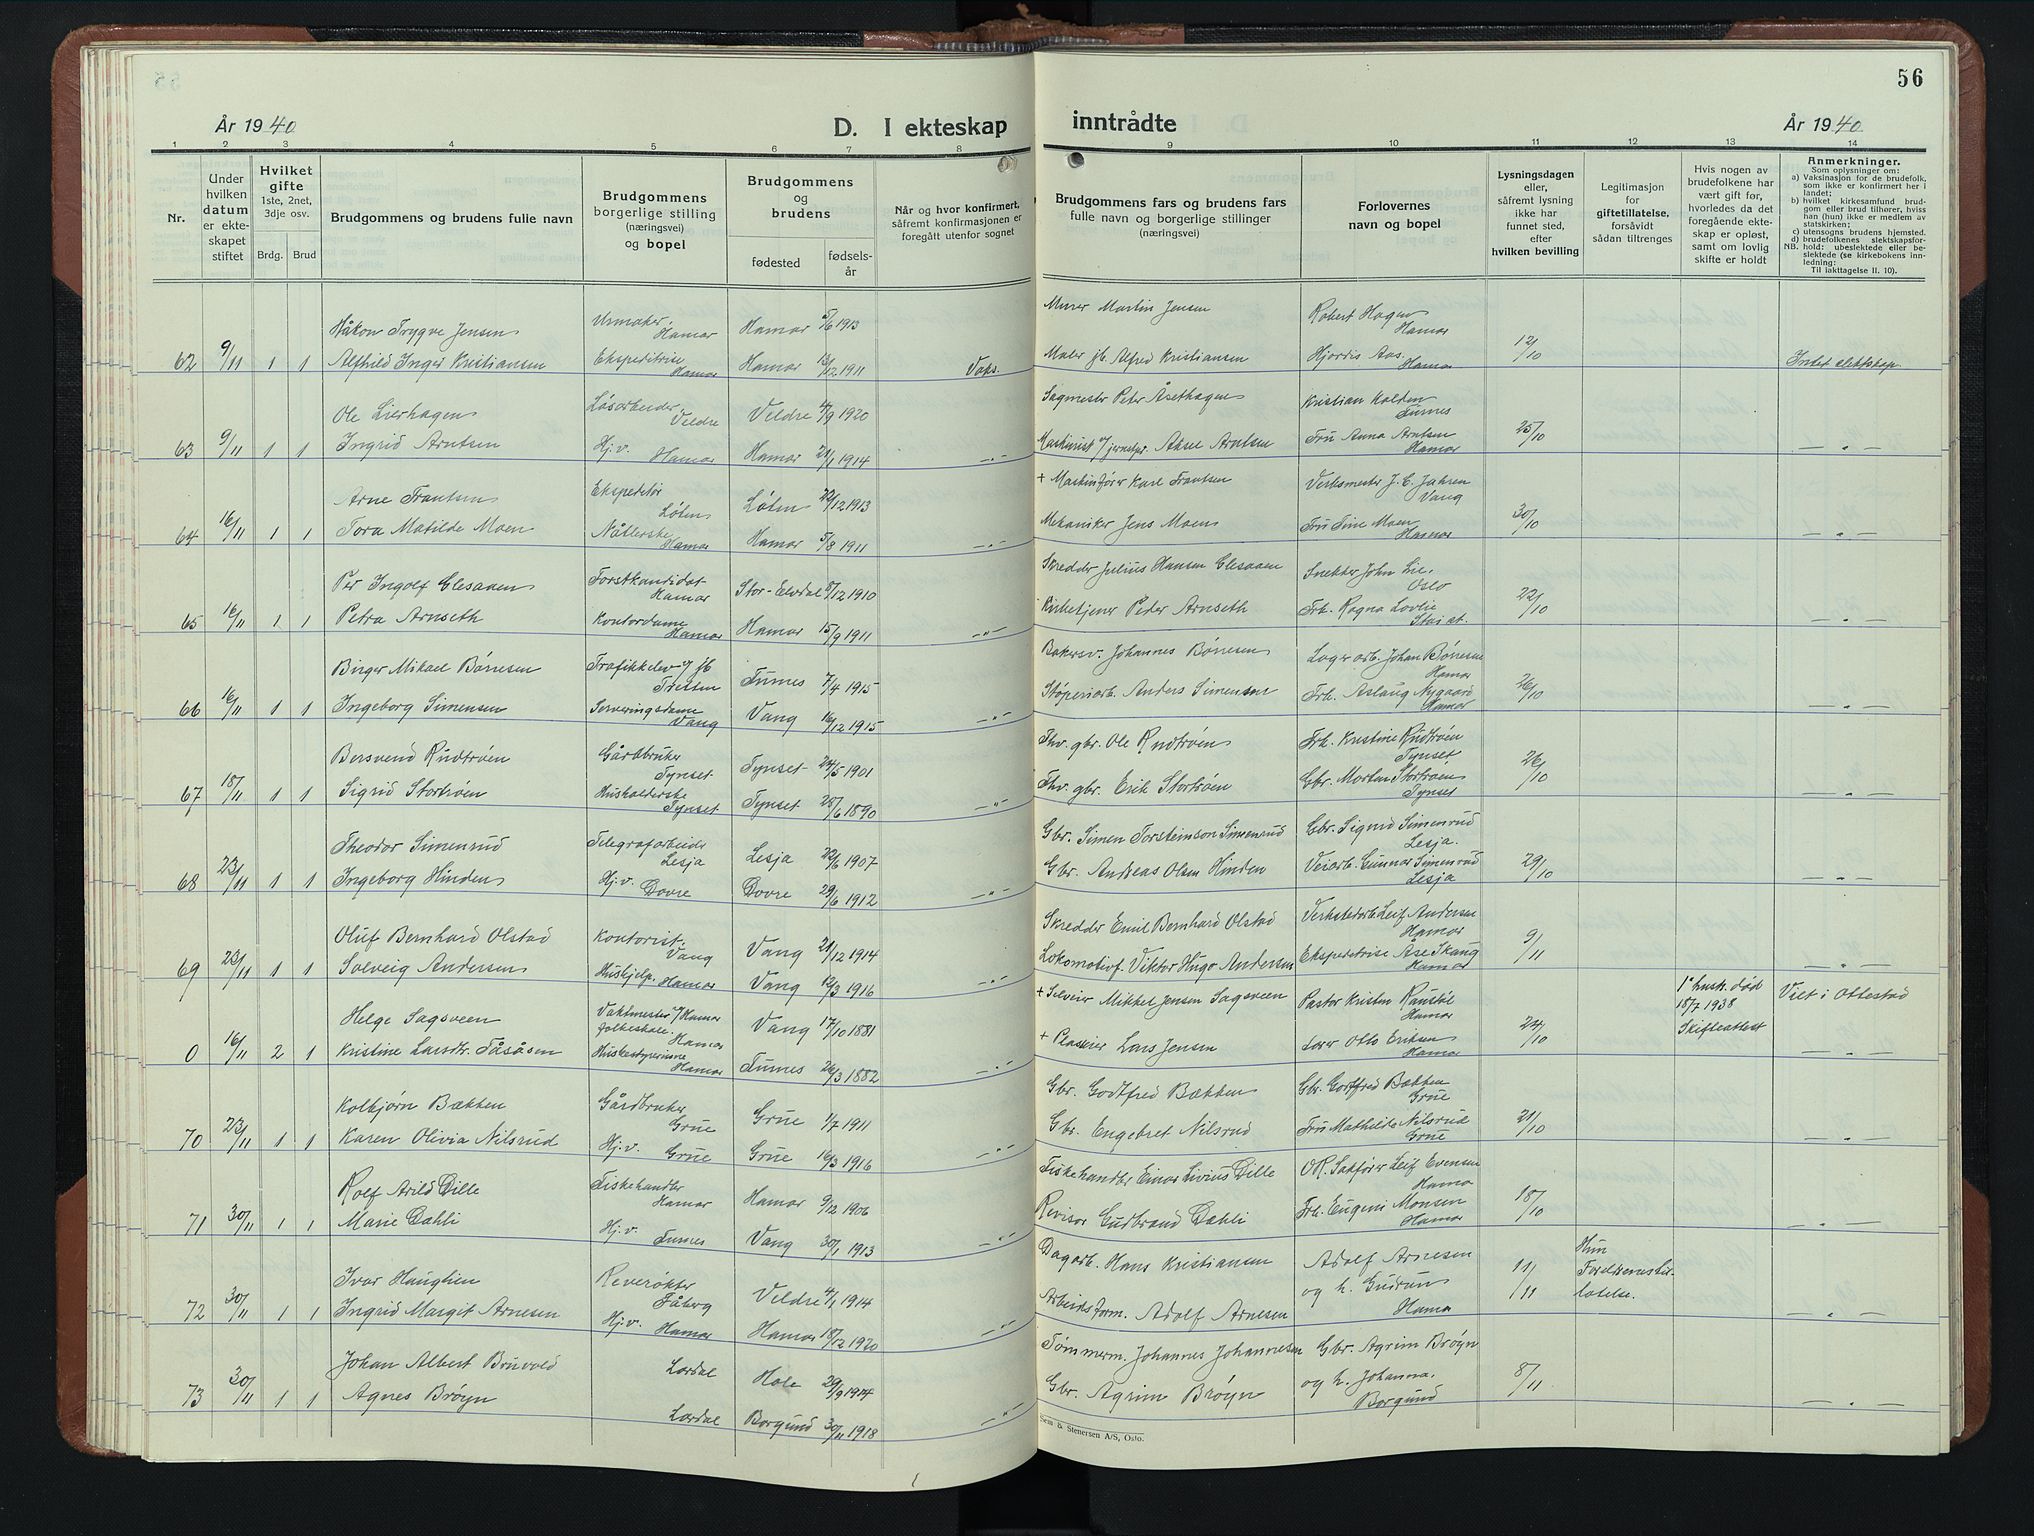 56
År 1940
D. I ekteskap inntrådte
År 1940
1 2 3 4 5 6 7 8 9 10 11 12 13 14
Nr.
Under hvilken datum er ekteskapet stiftet
Hvilket gifte 1ste, 2net, 3dje osv.
Brdg. Brud
Brudgommens og brudens fulle navn
Brudgommens borgerlige stilling (næringsvei) og bopel
Brudgommens og brudens
fødested
fødselsår
Når og hvor konfirmert, såfremt konfirmasjonen er foregått utenfor sognet
Brudgommens fars og brudens fars fulle navn og borgerlige stillinger (næringsvei)
Forlovernes navn og bopel
Lysningsdagen eller, såfremt lysning ikke har funnet sted, efter hvilken bevilling
Legitimasjon for giftetillatelse, forsåvidt sådan tiltrenges
Hvis nogen av brudefolkene har vært gift før, hvorledes da det foregående ekteskap er opløst, samt om lovlig skifte er holdt
Anmerkninger.
Som oplysninger om:
a) Vaksinasjon for de brudefolk, som ikke er konfirmert her i landet;
b) hvilket kirkesamfund brudgom eller brud tilhører, hviss han (hun) ikke er medlem av statskirken;
c) utensogns brudens hjemsted.
d) brudefolkenes slektskapsforhold: ubeslektede eller beslektede (se kirkebokens innledning:
NB. Til iakttagelse II. 10).
Håkon Trygve Jensen Urmaker, Hamar Hamar 5/6 1913 Murer Martin Jensen Robert Hagen Hamar
62 9/11 1 1 Alfhild Inger Kristiansen Ekspeditrise Hamar Hamar 13/12 1911 Vaks. Maler jb. Alfred Kristiansen Hjordis Aas. Hamar 12/10 Intet slektskap
Ole Lierhagen Løsarbeider Veldre Veldre 4/9 1920 Sagmester Peter Åsethagen Kristian Kolden Furnes
63 9/11 1 1 Ingrid Arntsen Hj.v. Hamar Hamar 21/1 1914 —"— Maskinist v/ jernstøp. Aksel Arntsen Fru Anna Arntsen Hamar 25/10 —"—
Arne Frantsen Ekspeditør Løten Løten 22/12 1913 + Maskinfører Karl Frantsen Verksmester J. E. Jahren Vang
64 16/11 1 1 Tora Matilde Moen Nåtlerske Hamar Hamar 5/8 1911 —"— Mekaniker Jens Moen Fru Tine Moen Hamar 30/10 —"—
Per Ingolf Elesaaen Forstkandidat Hamar Stor-Elvdal 8/12 1910 Skredder Julius Hansen Elesaaen Snekker John Lie. Oslo
65 16/11 1 1 Petra Arnseth Kontordame Hamar Hamar 15/9 1911 —"— Kirketjener Peder Arnseth Frk. Ragna Lovlie 22/10 —"—
Birger Mikael Børresen Trafikkelev v/ jb Tretten Furnes 7/4 1915 Bakersv. Johannes Børresen Lager arb. Johan Børresen Hamar
66 16/11 1 1 Ingeborg Simensen Serveringsdame Vang Vang 16/12 1915 —"— Støperiarb. Anders Simensen Frk. Aslaug Nygaard Hamar 26/10 —"—
Bersvend Rudtrøen Gårdbruker Tynset Tynset 24/5 1901 Fhv. gbr. Ole Rudtrøen Frk. Kristine Rudtrøen Tynset
67 18/11 1 1 Sigrid Stortrøen Husholderske Tynset Tynset 28/6 1890 —"— Fhv. gbr. Erik Stortrøen Gbr. Morten Stortrøen Tynset 26/10 —"—
Theodor Simenrud Telegrafarbeider Lesja Lesja 22/6 1907 Gbr. Simen Torsteinson Simenrud Gbr. Sigurd Simenrud Lesja.
68 23/11 1 1 Ingeborg Hinden Hj.v. Dovre Dovre 29/6 1912 —"— Gbr. Andreas Olsen Hinden Veiarb. Gunnar Simenrud Lesja 29/10 —"—
Oluf Bernhard Olstad Kontorist. Vang Vang 21/12 1914 Skredder Emil Bernhard Olstad Verkstedarb. Leif Andersen Hamar
69 23/11 1 1 Solveig Andersen Hushjelp. Hamar Vang 12/3 1916 —"— Lokomotivf. Viktor Hugo Andersen Ekspeditrise Åse Skaug Hamar 9/11 —"—
Helge Sagsveen Vaktmester v/ Hamar folkeskole. Hamar Vang 17/10 1881 + Selveier Mikkel Jensen Sagsveen Pastor Kristen Ranstøl Hamar 1ª hust. død 18/7 1938 Skifteattest Viet i Ottestad
0 16/11 2 1 Kristine Larsdtr. Fåsåsen Husbestyrerinne Hamar Furnes 26/3 1882 —"— + Plasseier Lars Jensen Lærer Otto Eriksen Hamar 24/10 —"—
Kolbjørn Bækken Gårdbruker Grue Grue 1/7 1911 Gbr. Godtfred Bækken Gbr. Gottfred Bækken Grue
70 23/11 1 1 Karen Olivia Nilsrud Hj.v. Grue Grue 16/3 1916 —"— Gbr. Engebret Nilsrud Fru Mathilde Nilsrud Grue 21/10 —"—
Rolf Arild Dille Fiskehandler Hamar Hamar 9/12 1906 Fiskehandler Einar Livius Dille O.R. Sakfører Leif Evensen Hamar
71 30/11 1 1 Marie Dæhli Hj.v. Furnes Vang 30/1 1913 —"— Revisor Gudbrand Dæhli Frk. Eugeni Monsen Hamar 18/10 —"—
Ivar Hauglien Reverøkter Fåberg Veldre 4/1 1914 Dagarb. Hans Kristiansen Adolf Arnesen Hun Foreldrenes tillatelse.
72 30/11 1 1 Ingrid Margit Arnesen Hj.v. Hamar Hamar 18/12 1920 —"— Arbeidsform. Adolf Arnesen og h. Gudrun Hamar 11/11 —"—
Johan Albert Bruvold Lærdal Hole 29/9 1914 Tømmerm. Johannes Johannesen Gbr. Agrim Brøyn
73 30/11 1 1 Agnes Brøyn Lærdal Borgund 30/11 1918 —"— Gbr. Agrim Brøyn og h. Johanna. Borgund 8/11 —"—
Sem & Stenersen A/S, Oslo.